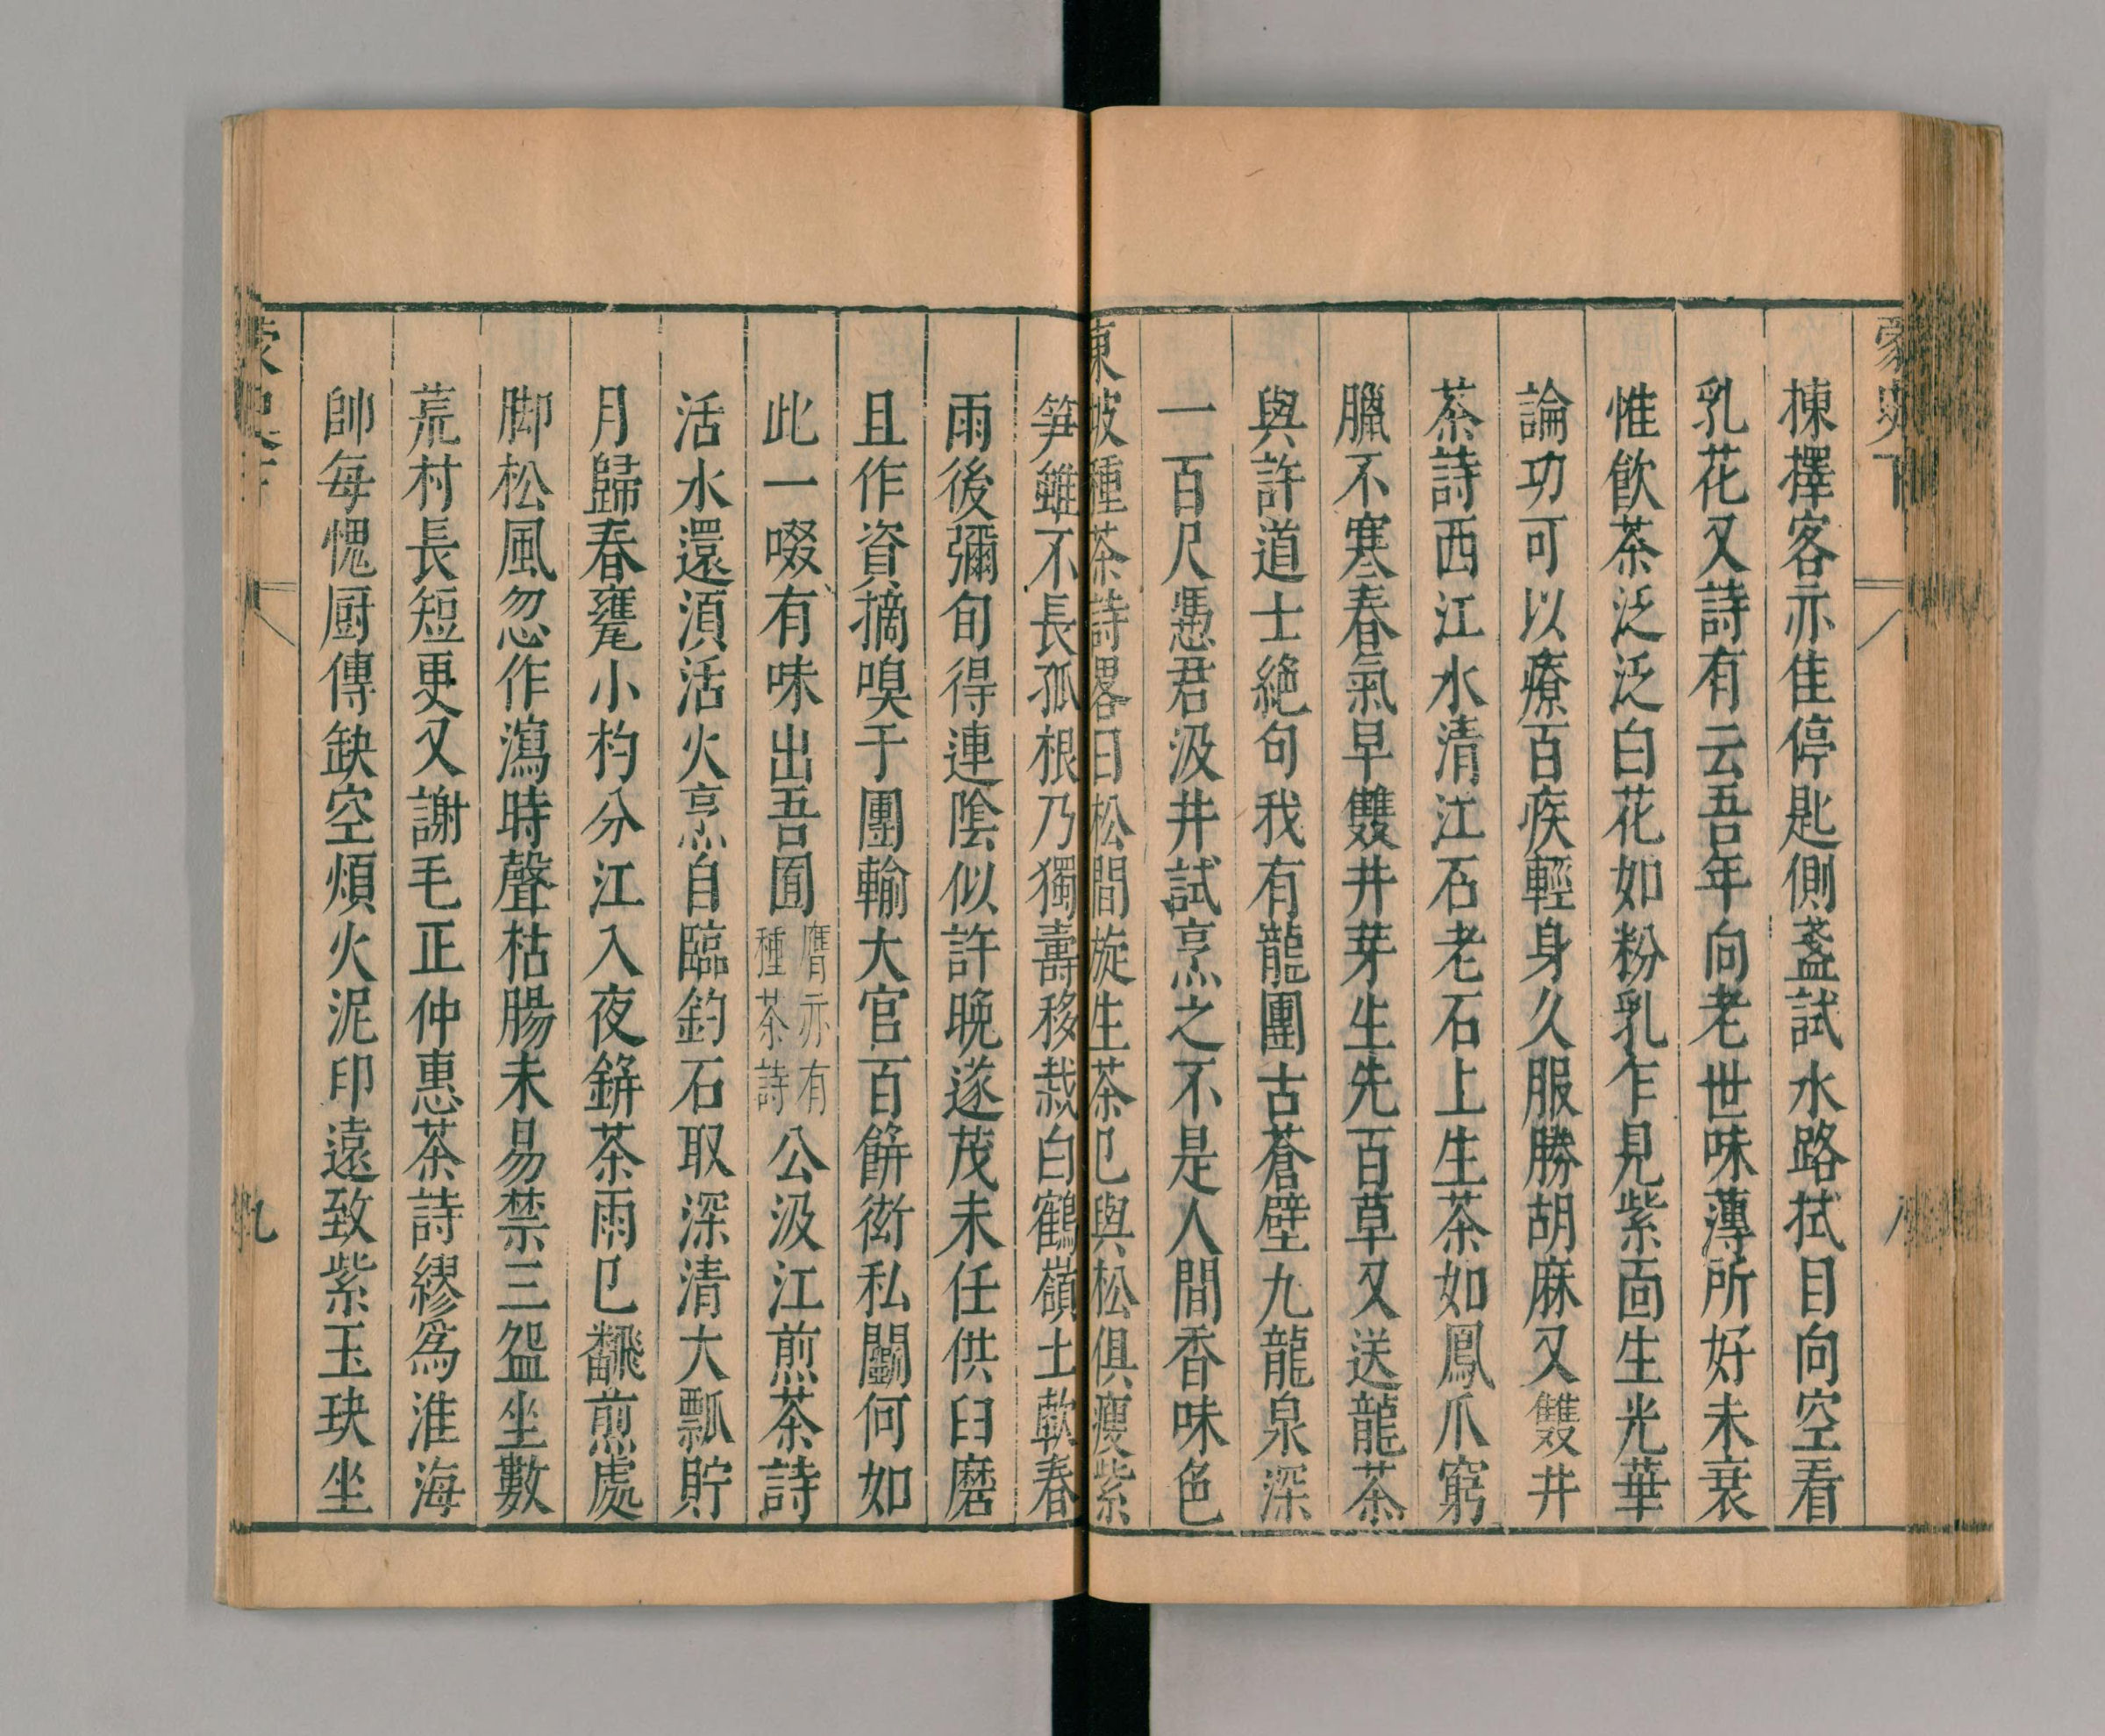 蒙史下
揀擇客亦佳停匙側盞試水路拭目向空看
乳花又詩有云吾年向老世味薄所好未衰
惟飲茶泛泛白花如粉乳乍見紫面生光華
論功可以療百疾輕身久服勝胡麻又雙井
茶詩西江水清江石老石上生茶如鳳爪窮
臘不寒春氣早雙井芽生先百草又送龍茶
與許道士絶句我有龍團古蒼璧九龍泉深
一百尺憑君汲井試烹之不是人間香味色
東坡種茶詩畧曰松間旋生茶已與松俱瘦紫
笋雖不長孤根乃獨壽移栽白鶴嶺土軟春
雨後彌旬得連陰似許晩遂茂未任供臼磨
且作資摘嗅于團輸大官百餅衒私鬬何如
此一啜有味出吾囿膺亦有種茶詩公汲江煎茶詩
活水還湏活火烹自臨釣石取深清大瓢貯
月歸春甕小杓分江入夜缾茶雨已飜煎處
脚松風忽作瀉時聲枯腸未易禁三盌坐數
荒村長短更又謝毛正仲惠茶詩繆爲淮海
帥每愧厨傳缺空煩火泥印遠致紫玉玦坐
九